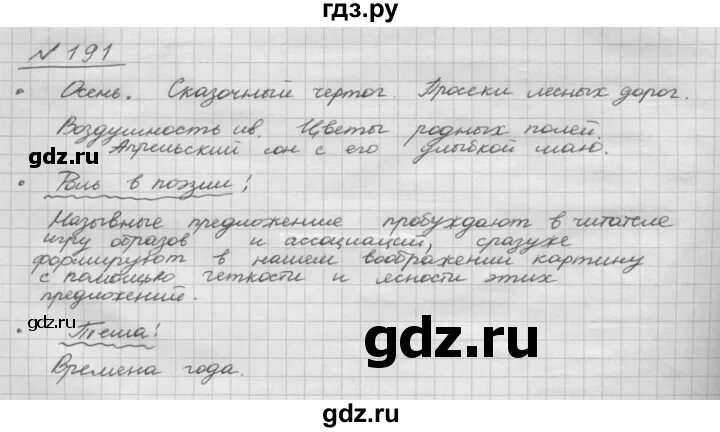 гдз.ру
№ 191
• Осень. Сказочный чертог. Просеки лесных дорог.
Воздушность ив. Цветы родных полей.
Апрельский сон с его улыбкой маю.
gdz.ru gdz.ru
• Роль в поэзии!
Назывные предложение пробуждают в читателе
игру образов и ассоциаций, сразухе
формируют в нашем воображении картину
с помощью четкости и ясности этих
предложений.
gdz.ru gdz.ru
• Тема!
Времена года.
gdz.ru